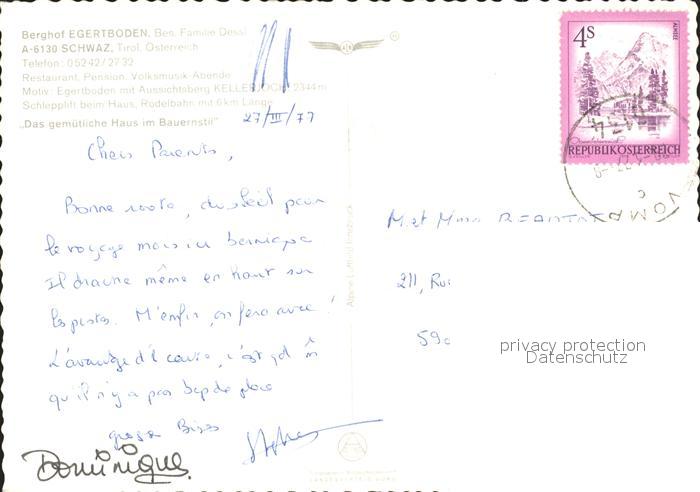 Berghof EGERTBODEN, Bes. Familie Dessl
A-6130 SCHWAZ, Tirol, Österreich
Telefon: 05242/2732
Restaurant, Pension, Volksmusik-Abende
Motiv: Egertboden mit Aussichtsberg KELLERJOCH 2344m
Schlepplift beim Haus, Rodelbahn mit 6 km Länge
„Das gemütliche Haus im Bauernstil"
27/III/77
Chers Parents,
Bonne route, du soleil pour
le voyage mais ici bernique
Il drache même en haut sur
les pistes. M'enfin, on fera avec!
L'avantage de la cause, c'est qd m̂
qu'il n'y a pas bcp de place
grosses Bises
Dominique
4s
REPUBLIK ÖSTERREICH
VOMP
Alpine Luftbild Innsbruck
M et Mme
211, Rue
59
privacy protection
Datenschutz